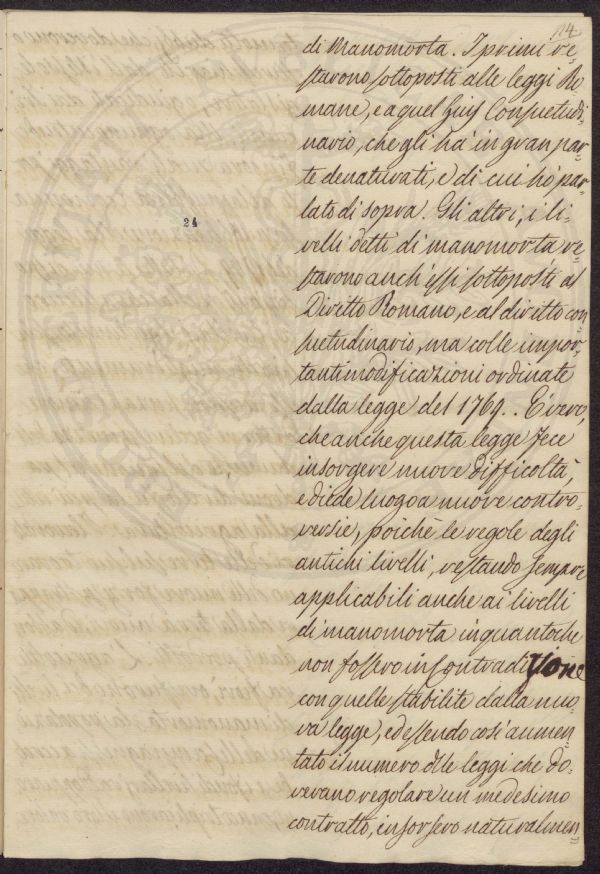 114
di Manomorta. I primi re=
starono sottoposti alle leggi Ro
mane, e a quel Gius Consuetudi=
nario, che gli hà in gran par=
te denaturati, e di cui hò par=
lato di sopra. Gli altri, i li=
velli detti di manomorta re=
starono anch'essi sottoposti al
Diritto Romano, e al diritto con
suetudinario, ma colle impor=
tanti modificazioni ordinate
dalla legge del 1769.. È vero,
che anche questa legge fece
insorgere nuove difficoltà,
e diede luogo a nuove contro=
versie, poichè le regole degli
antichi livelli, restando sempre
applicabili anche ai livelli
di manomorta in quantoche
non fossero in Contradizione
con quelle stabilite dalla nuo=
va legge, ed essendo così aumen=
tato il numero delle leggi che do=
verano regolare un medesimo
contratto, insorsero naturalmen=
24